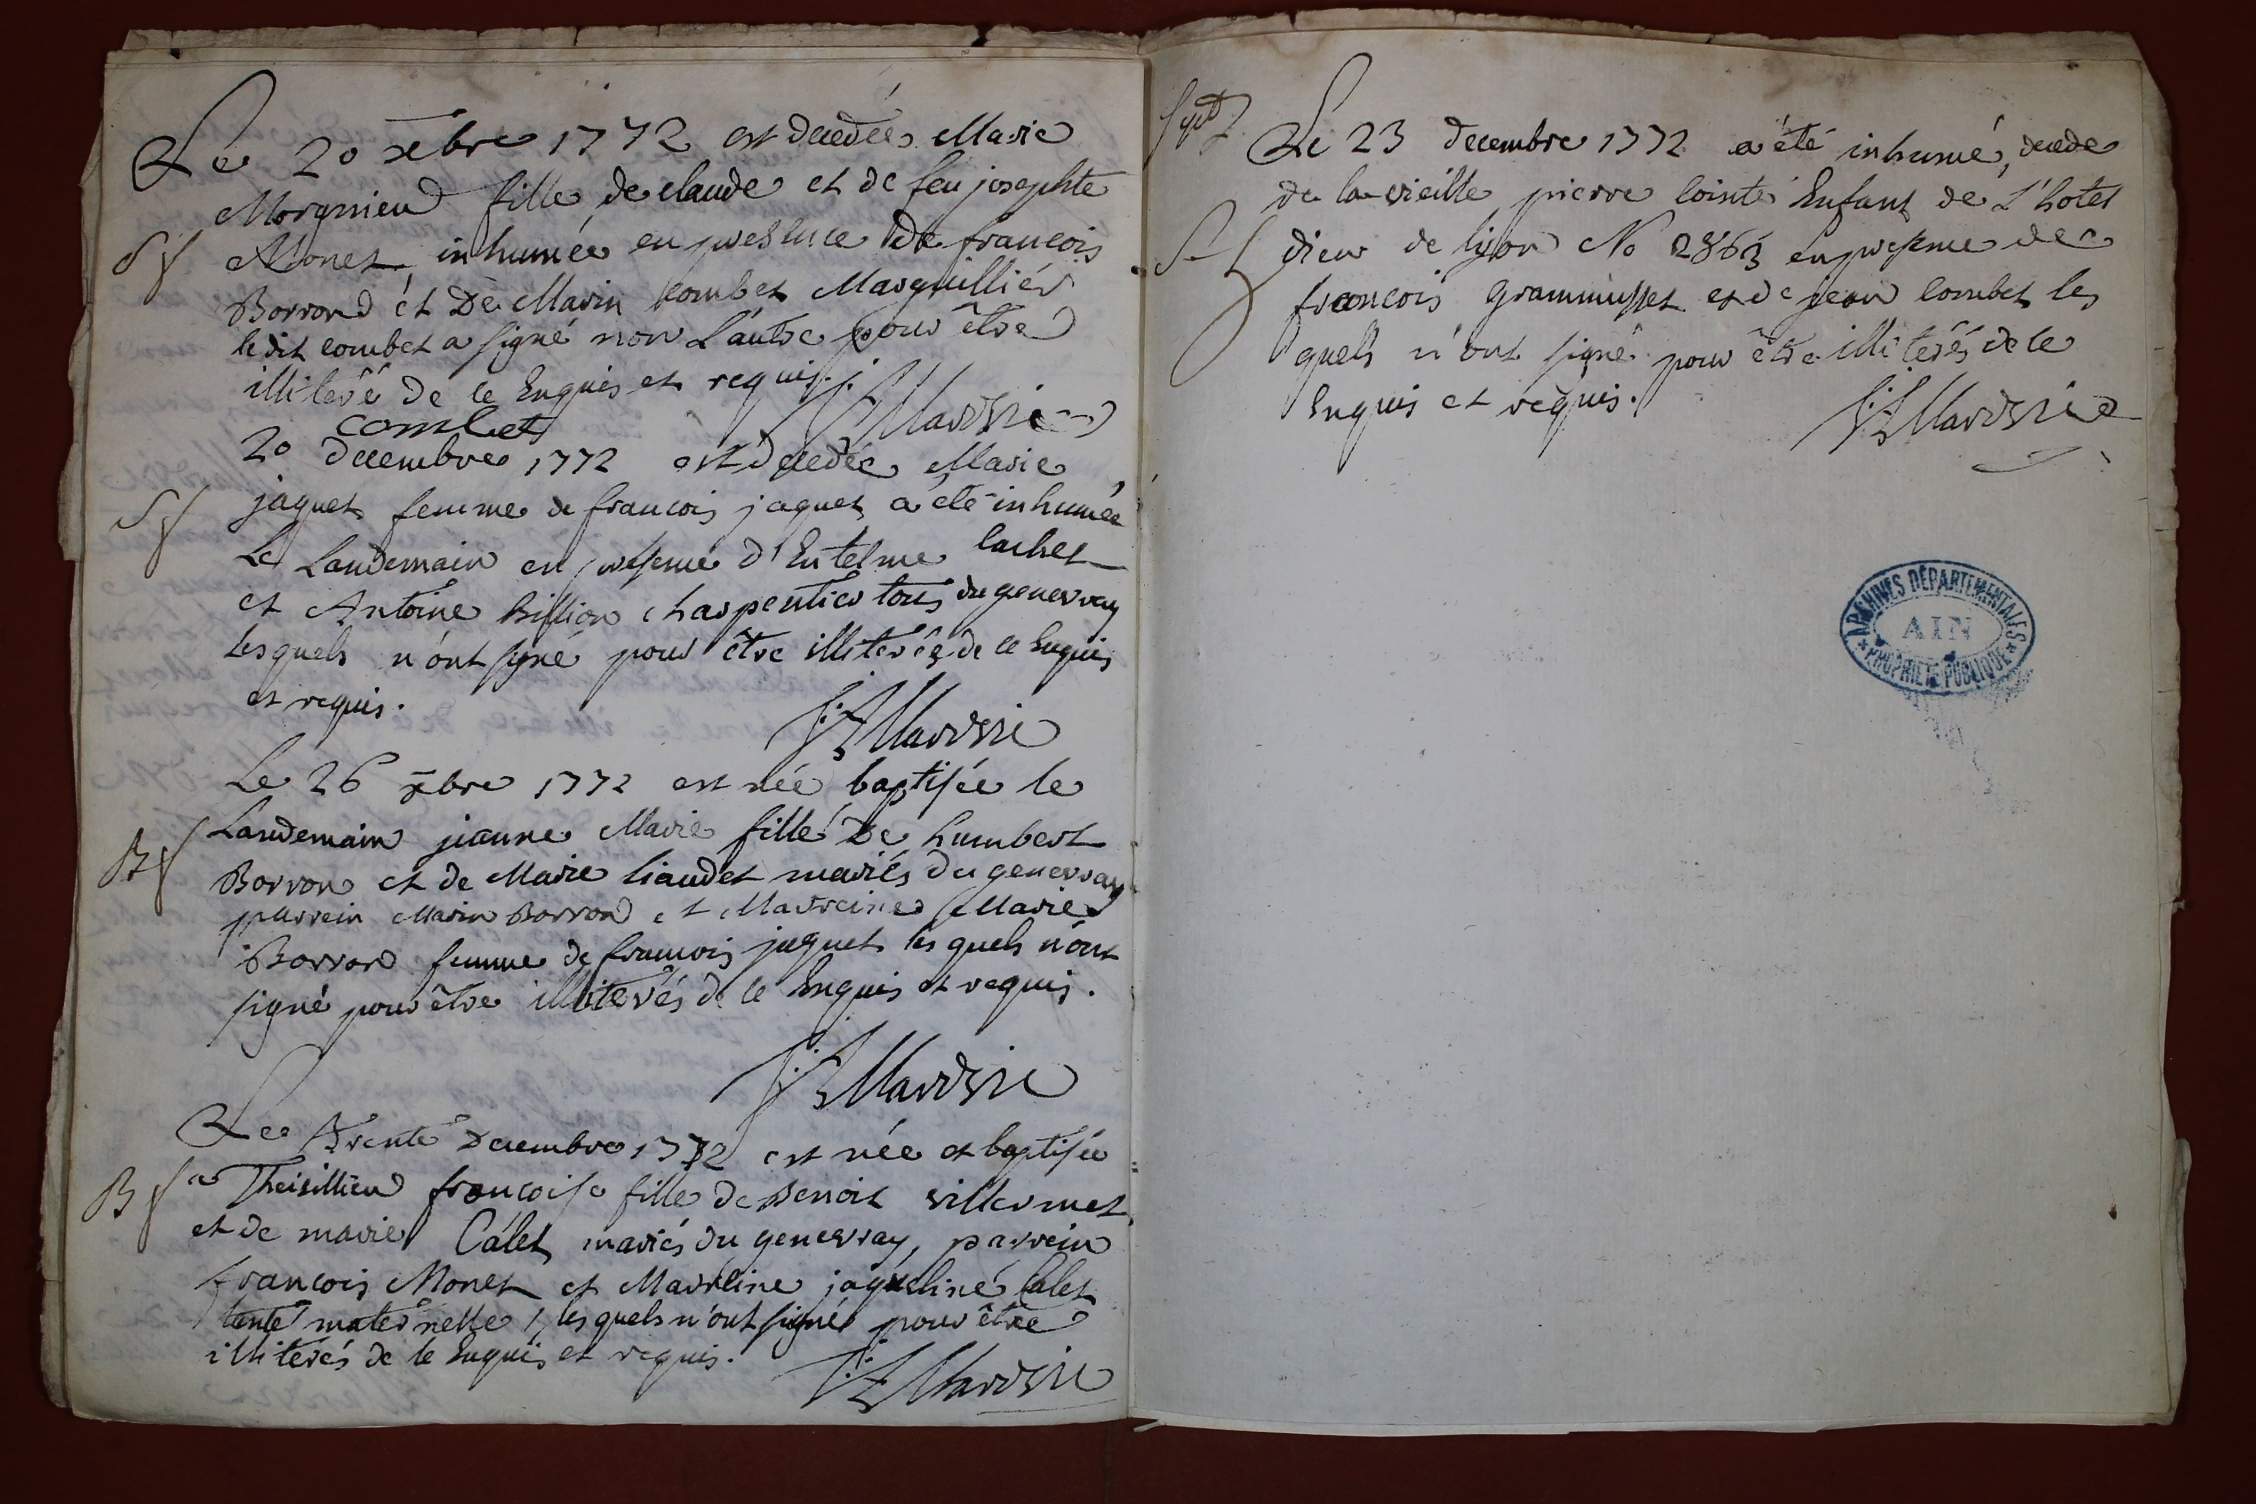 Le 20 xbre 1772 est decedée Marie
Morgnieud fille de claude et de feu josephte
Sp
Monet inhumée en presence de francois
Borrond et De Marin Combet Marguilliér
le dit combet a signé non L'autre pour être
illiteré de ce Enquis et requis.
combet
20 decembre 1772 est decedée Marie
jaquet femme de francois jaquet a été inhumée
Sp
Le Landemain en presence d'Entelme lachet
et Antoine billion charpentier tous du genevray
lesquels n'ont signé pour être illiterés de ce Enquis
et requis.
Le 26 xbre 1772 est née baptisée le
Landemain jeanne Marie fille De humbert
Bp
Borron et de Marie liaudet mariés du genevray
parrein Marin Borrond et Marreine Marie
Borrond femme de francois jaquet les quels n'ont
signé pour être illiterés de ce Enquis et requis.
Le trente Decembre 1772 est née et baptisée
Bp
francoise fille de Benoit villermet
et de marie Cálet mariés du genevray, parrein
francois Monet et Marreine jaqueline Calet
tente maternelle, lesquels n'ont signé pour être
illiterés de ce Enquis et requis.
Le 23 decembre 1772 a été inhumé, decede
de la vieille pierre Cointe Enfant de L'hotel
dieu de lyon No 2863 en presence de
francois grammusset et de jean Combet les
quels n'ont signé pour être illiterés de ce
Enquis et requis.
ARCHIVES DÉPARTEMENTALES
AIN
PROPRIÉTÉ PUBLIQUE